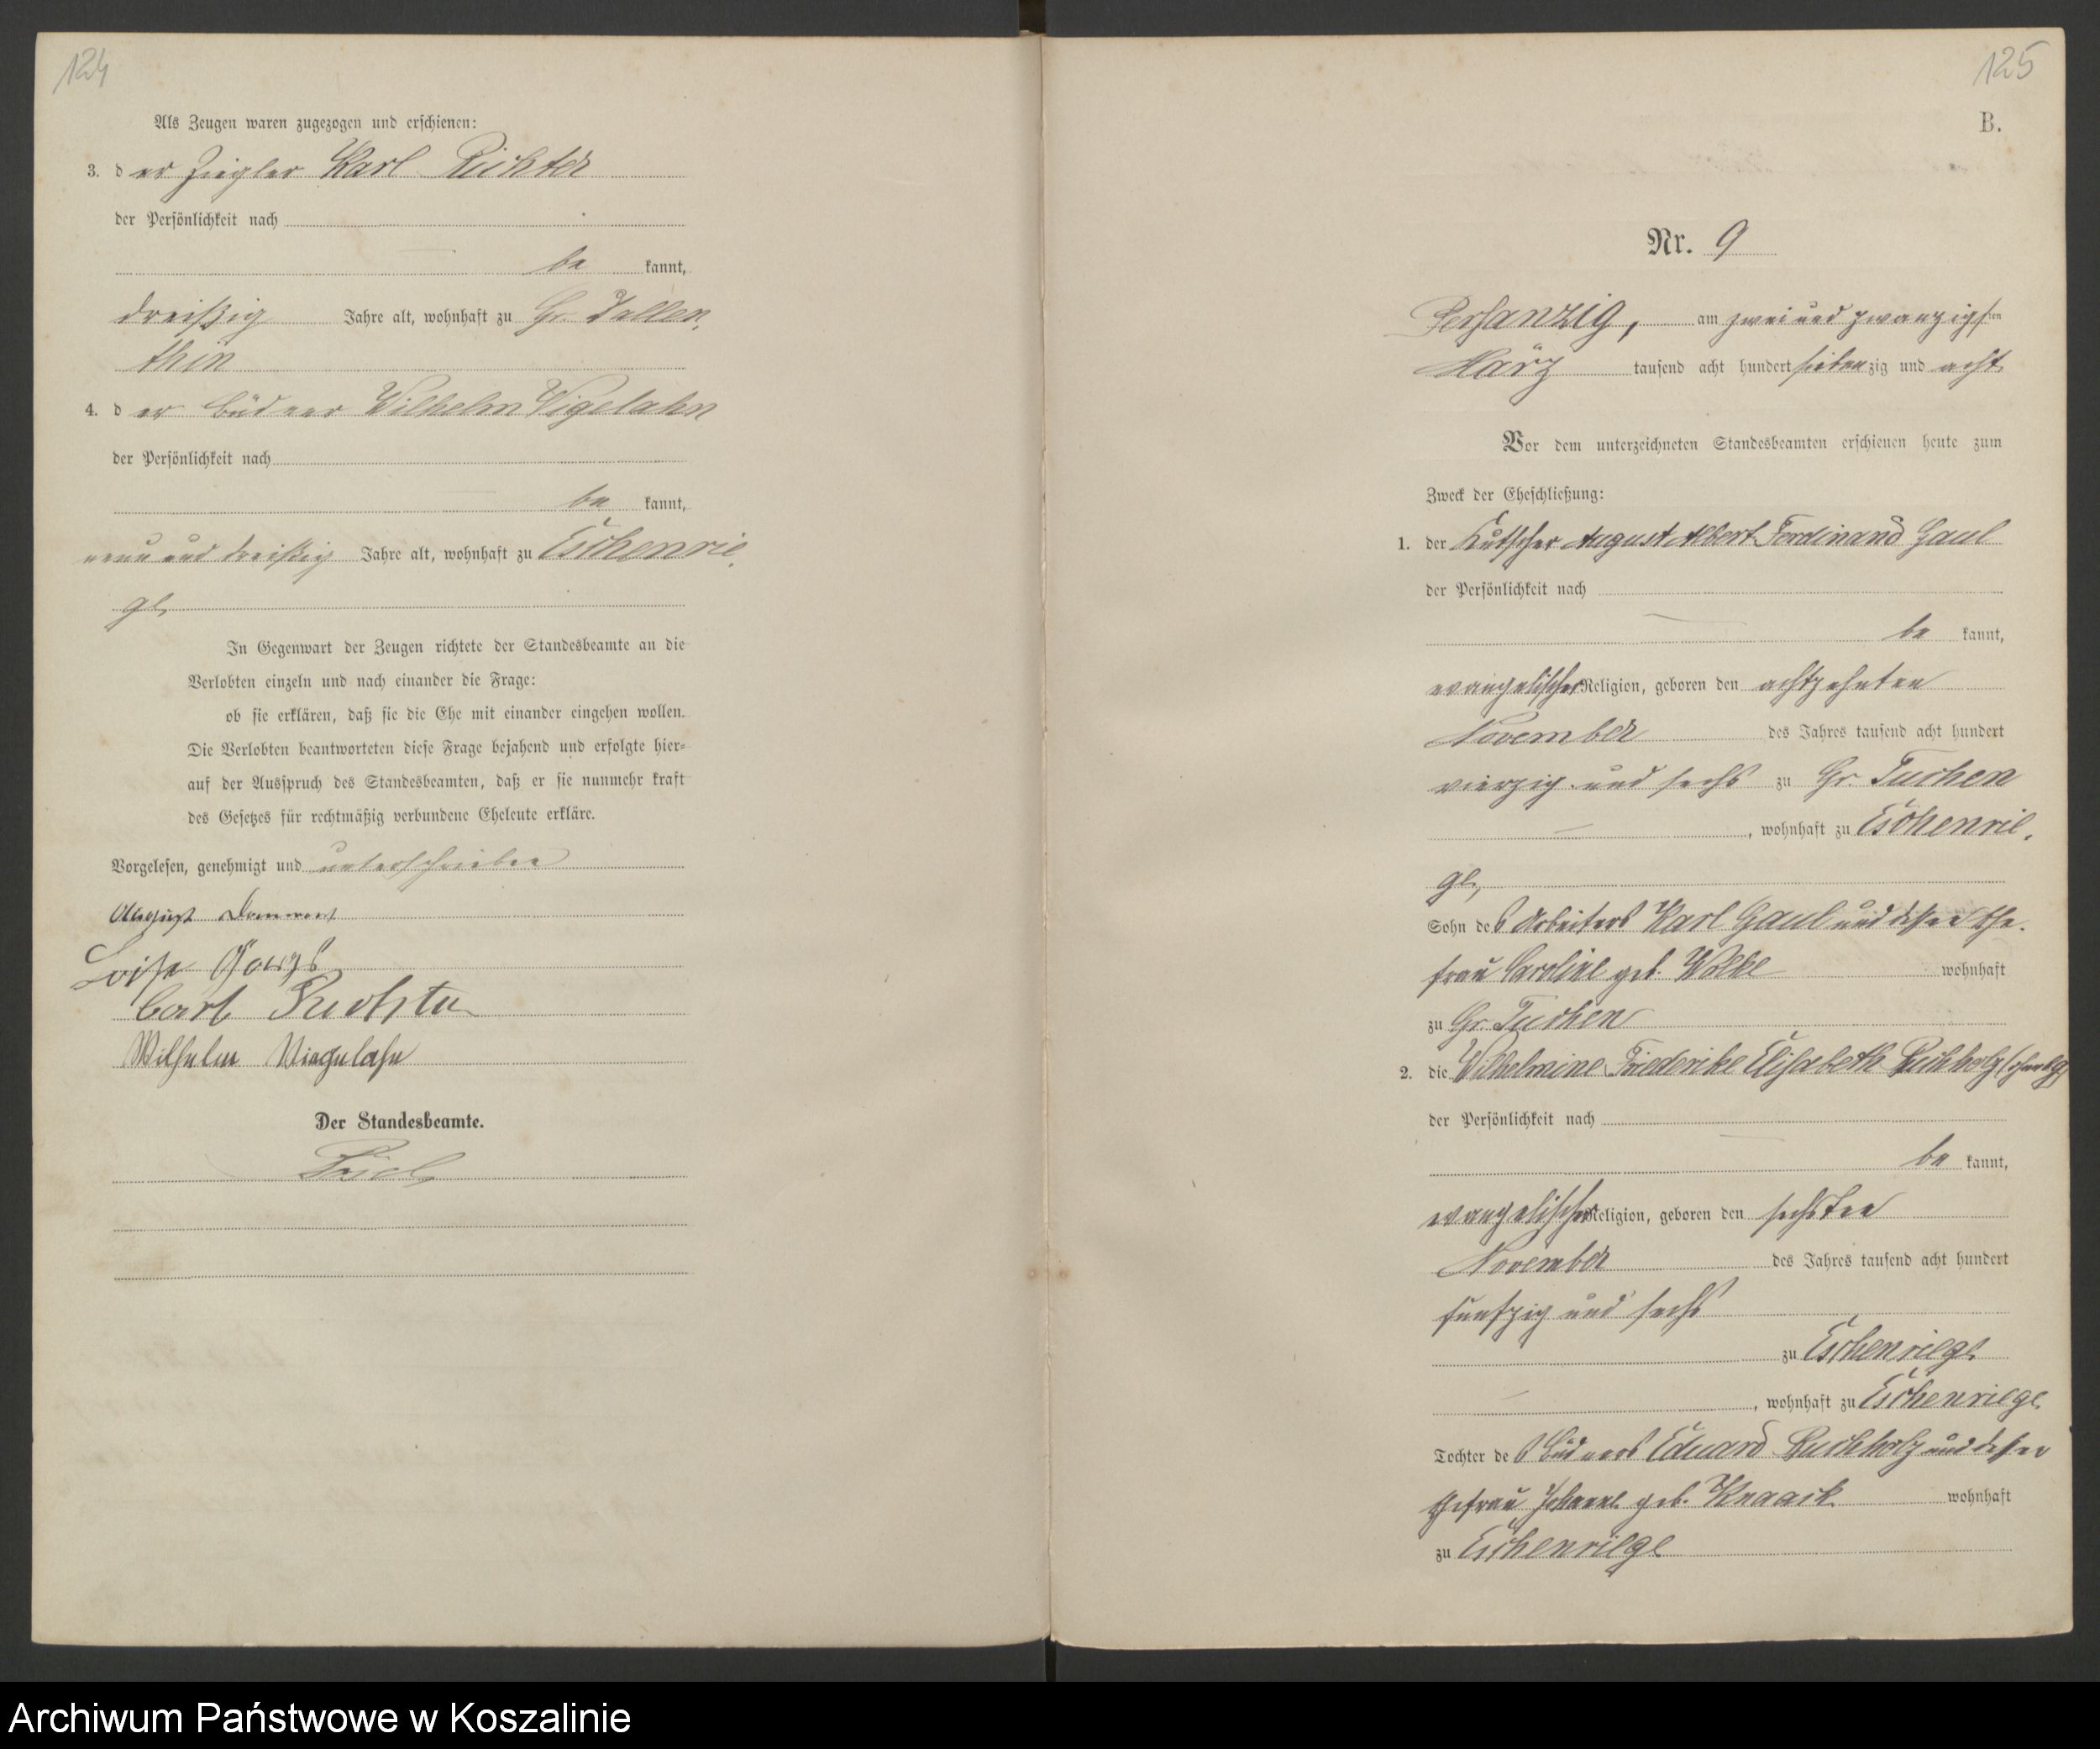 124
Als Zeugen waren zugezogen und erschienen:
3. d er Ziegler Karl Richter
der Persönlichkeit nach
be kannt,
dreißig Jahre alt, wohnhaft zu Gr. Dallen,
thin
4. d er Büdner Wilhelm Vigelahn
der Persönlichkeit nach
be kannt,
neun und dreißig Jahre alt, wohnhaft zu Eschenrie,
ge,
In Gegenwart der Zeugen richtete der Standesbeamte an die
Verlobten einzeln und nach einander die Frage:
ob sie erklären, daß sie die Ehe mit einander eingehen wollen.
Die Verlobten beantworteten diese Frage bejahend und erfolgte hier-
auf der Ausspruch des Standesbeamten, daß er sie nunmehr kraft
des Gesetzes für rechtmäßig verbundene Eheleute erkläre.
Vorgelesen, genehmigt und unterschrieben
August
Carl Richter
Wilhelm Viegelahn
Der Standesbeamte.
125
B.
Nr. 9
Persanzig, am zwei und zwanzigsten
März tausend acht hundert siebenzig und acht
Vor dem unterzeichneten Standesbeamten erschienen heute zum
Zweck der Eheschließung:
1. der Kutscher August Albert Ferdinand Gaul
der Persönlichkeit nach
be kannt,
evangelischer Religion, geboren den achtzehnten
November des Jahres tausend acht hundert
vierzig und sechs zu Gr. Tuchen
, wohnhaft zu Eschenrie,
ge,
Sohn des Arbeiters Karl Gaul und dessen Ehe,
frau Caroline geb. Wolke wohnhaft
zu Gr. Tuchen
2. die Wilhelmine Friederike Elisabeth Buchholz
der Persönlichkeit nach
be kannt,
evangelischer Religion, geboren den sechsten
November des Jahres tausend acht hundert
funfzig und sechs
zu Eschenriege
, wohnhaft zu Eschenriege
Tochter des Büdners Eduard Buchholz und dessen
Ehefrau Johanne geb. Knaack wohnhaft
zu Eschenriege
Archiwum Państwowe w Koszalinie